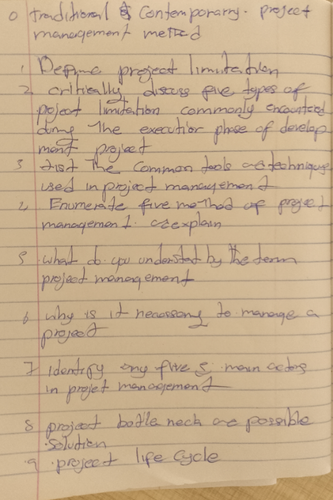 0 Traditional & Contemporary. project
management method
1 Define project limitation
2 critically discuss five types of
project limitation commonly encountered
during The execution phase of develop
ment project
3 List The common tools & technique
used in project management
2 Enumerate five method of project
management. & explain
5 what do you understand by the term
project management
6 why is it necessary to manage a
project
7 Identify any five 5 main actors
in project management
8 project bottle neck are possible
solution
9 project life cycle